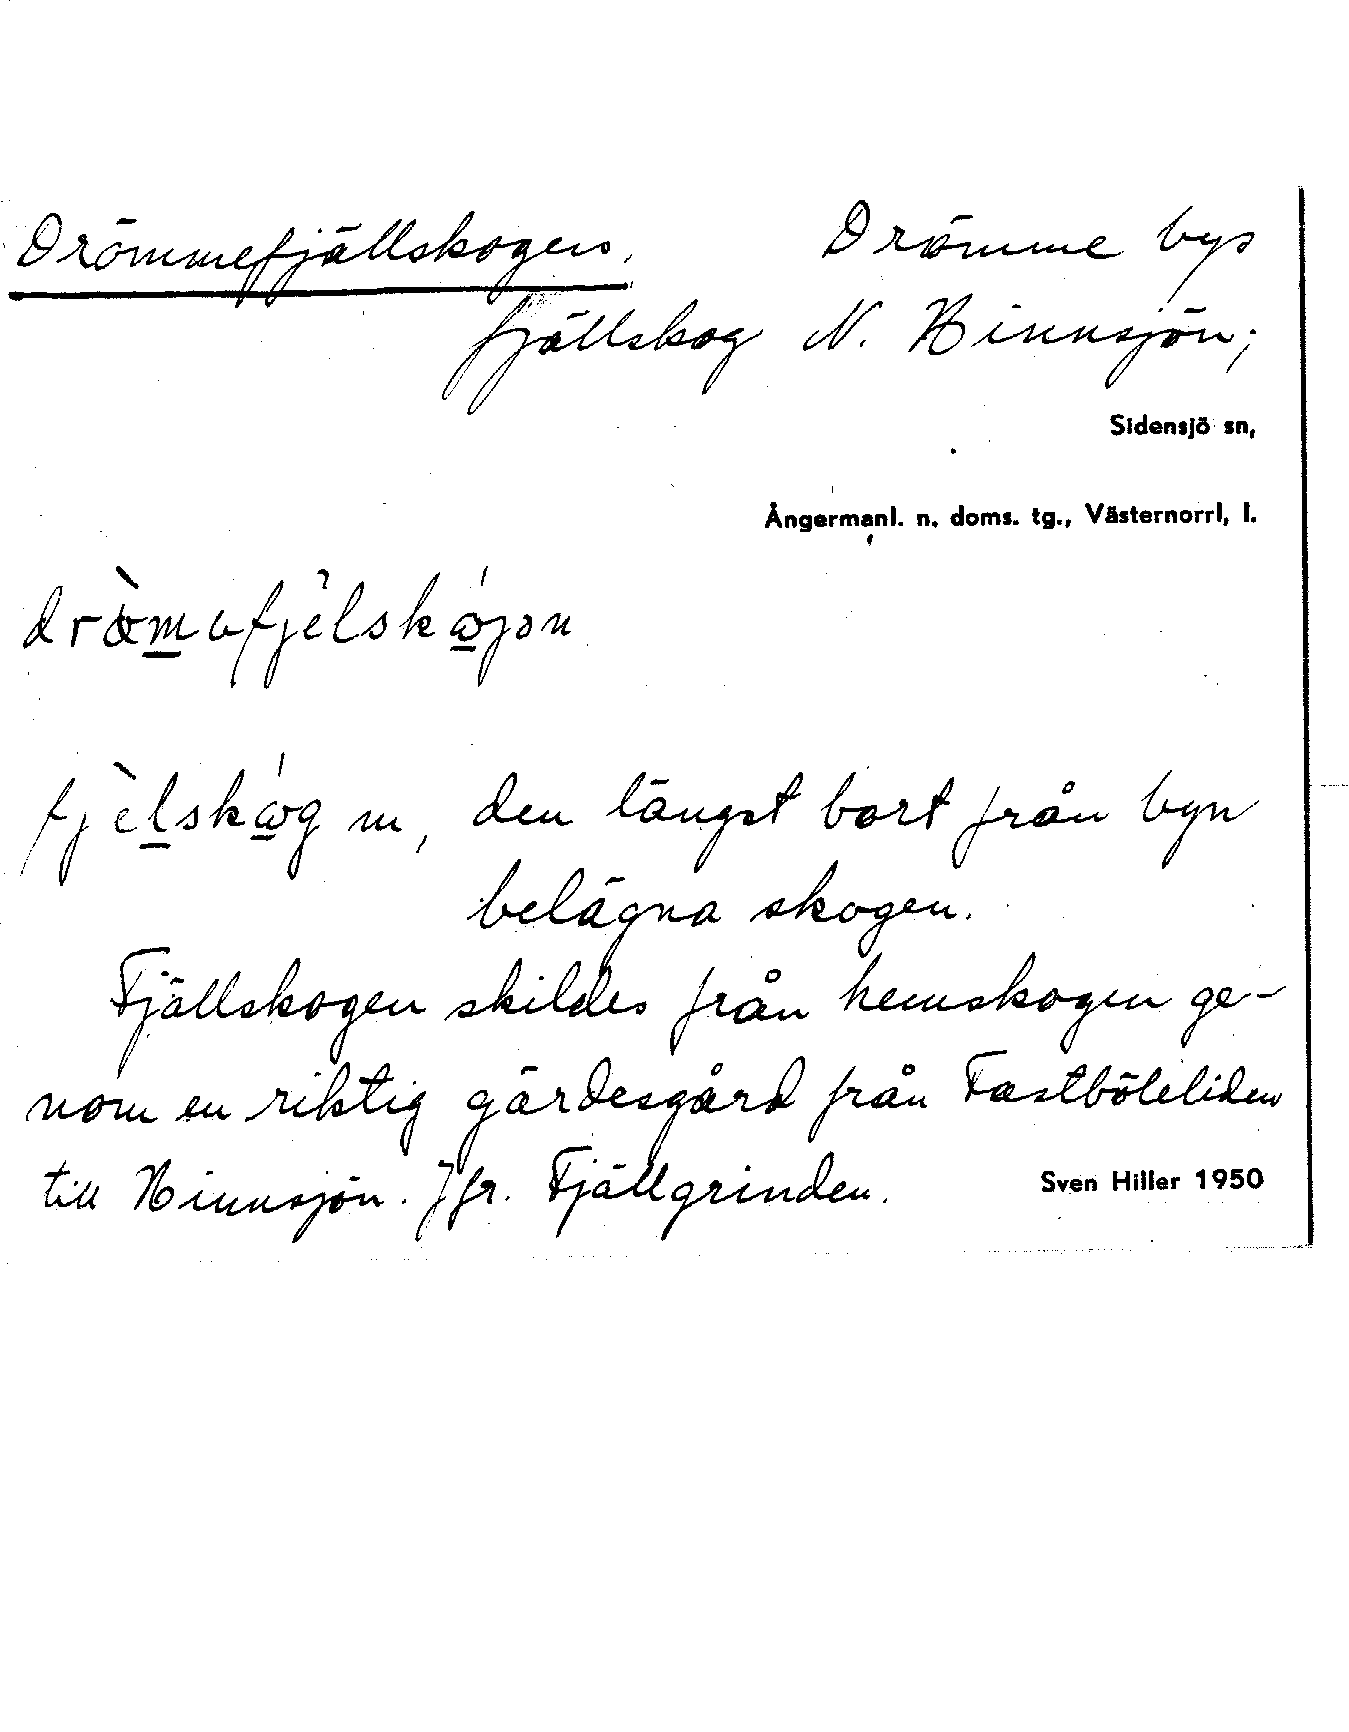 Drömmefjällskogen, Drömme bys
fjällskog N. Hinnsjön;
Sidensjö sn,
Ångermanl. n. doms. tg., Västernorrl, l.
den längst bort från byn
belägna skogen.
Fjällskogen skildes från hemskogen ge-
nom en riktig gärdesgård från Fastböleliden
till Hinnsjön. Jfr. Fjällgrinden. Sven Hiller 1950